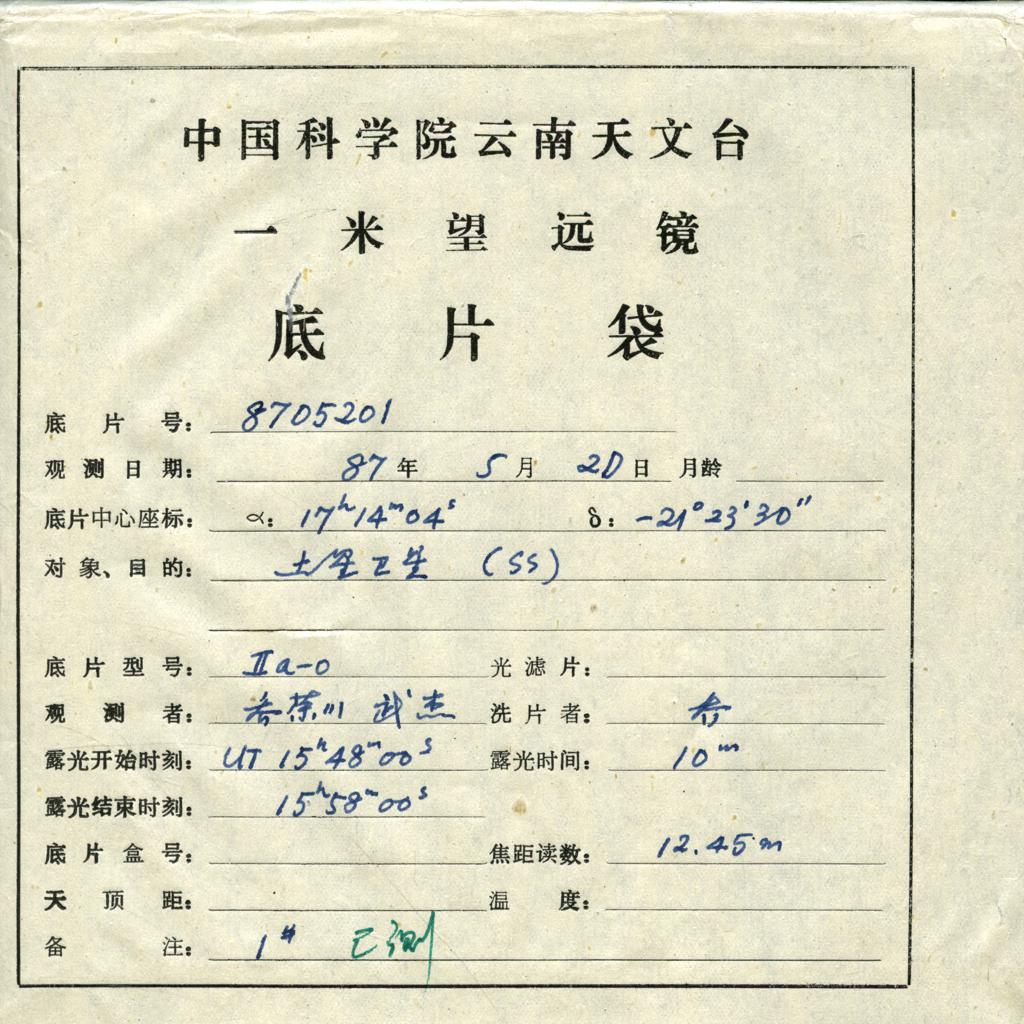 中国科学院云南天文台
一米望远镜
底片袋
底片号： 8705201
观测日期： 87年 5月 20日 月龄
底片中心座标： α： 17h14m04s δ： -21°23′30″
对象、目的： 土星卫星 (SS)
底片型号： IIa-o 光滤片：
观测者： 武杰 洗片者：
露光开始时刻： UT 15h48m00s 露光时间： 10m
露光结束时刻： 15h58m00s
底片盒号： 焦距读数： 12.45m
天顶距： 温度：
备注： 1# 已测